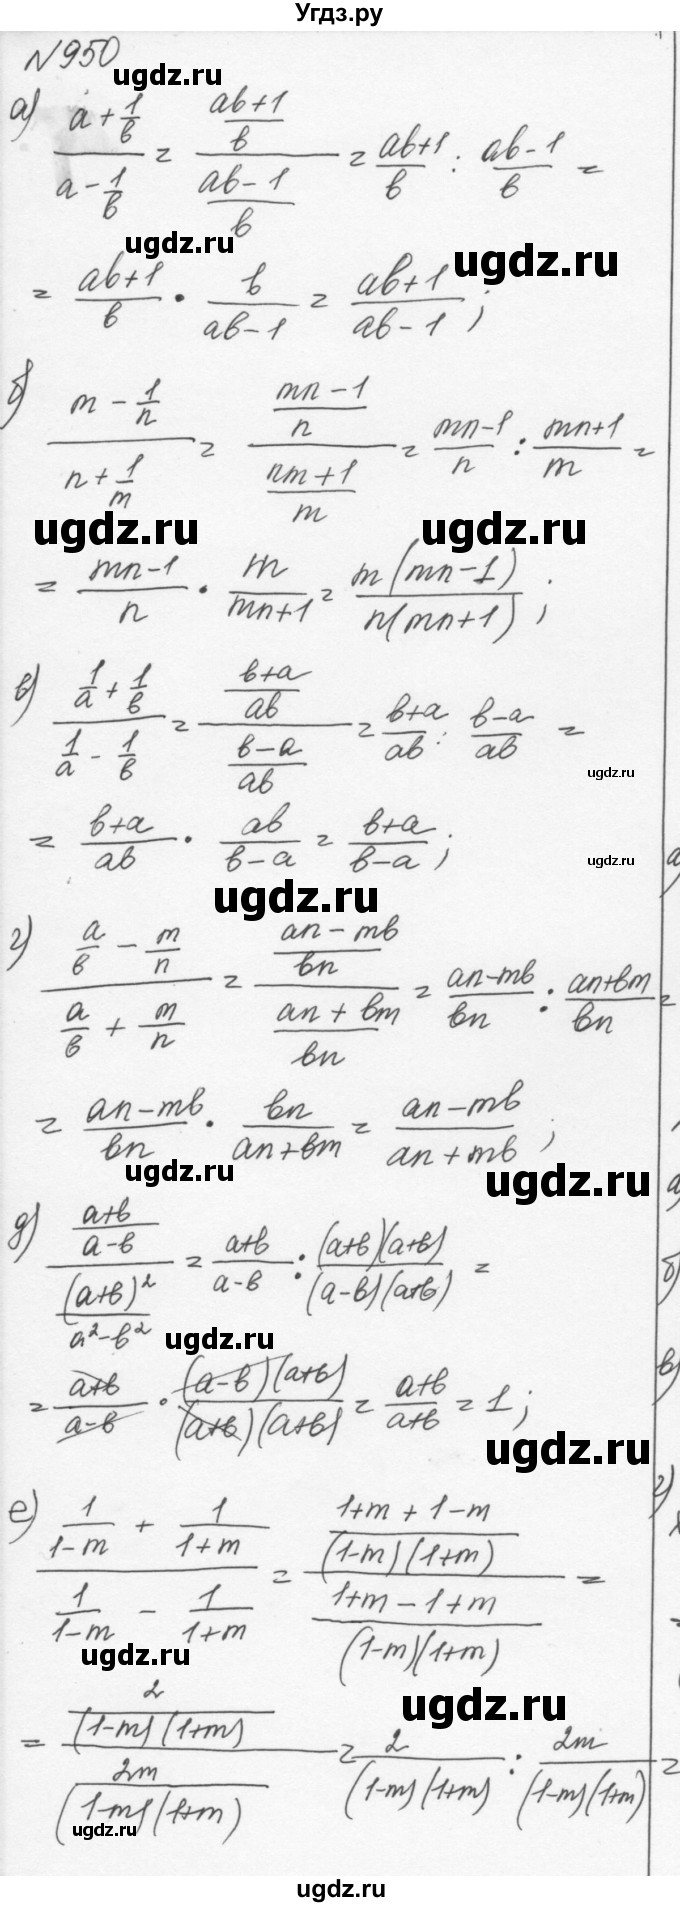 Угдз.ру
N950
ugdz.ru
а) (a + 1/b)/(a - 1/b) = ((ab+1)/b)/((ab-1)/b) = (ab+1)/b : (ab-1)/b =
ugdz.ru
ugdz.ru
= (ab+1)/b · b/(ab-1) = (ab+1)/(ab-1);
б) (m - 1/n)/(n + 1/m) = ((mn-1)/n)/((nm+1)/m) = (mn-1)/n : (mn+1)/m =
ugdz.ru
ugdz.ru
= (mn-1)/n · m/(mn+1) = m(mn-1)/n(mn+1);
в) (1/a + 1/b)/(1/a - 1/b) = ((b+a)/ab)/((b-a)/ab) = (b+a)/ab : (b-a)/ab =
ugdz.ru
= (b+a)/ab · ab/(b-a) = (b+a)/(b-a);
ugdz.ru
а)
ugdz.ru
г) (a/b - m/n)/(a/b + m/n) = ((an-mb)/bn)/((an+bm)/bn) = (an-mb)/bn : (an+bm)/bn =
= (an-mb)/bn · bn/(an+bm) = (an-mb)/(an+mb);
ugdz.ru
ugdz.ru
д) ((a+b)/(a-b))/((a+b)²/(a²-b²)) = (a+b)/(a-b) : (a+b)(a+b)/(a-b)(a+b) =
б)
ugdz.ru
= (a+b)/(a-b) · (a-b)(a+b)/(a+b)(a+b) = (a+b)/(a+b) = 1;
в)
ugdz.ru
е) (1/(1-m) + 1/(1+m))/(1/(1-m) - 1/(1+m)) = ((1+m+1-m)/(1-m)(1+m))/((1+m-1+m)/(1-m)(1+m)) =
г)
ugdz.ru
ugdz.ru
= (2/(1-m)(1+m))/(2m/(1-m)(1+m)) = 2/(1-m)(1+m) : 2m/(1-m)(1+m) =
ugdz.ru
ugdz.ru